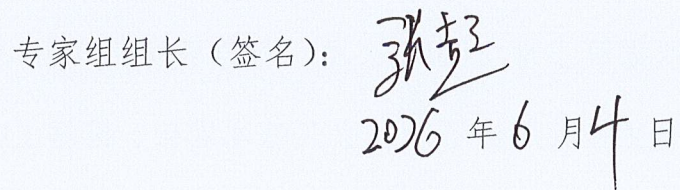 专家组组长（签名）：张
2026年6月4日